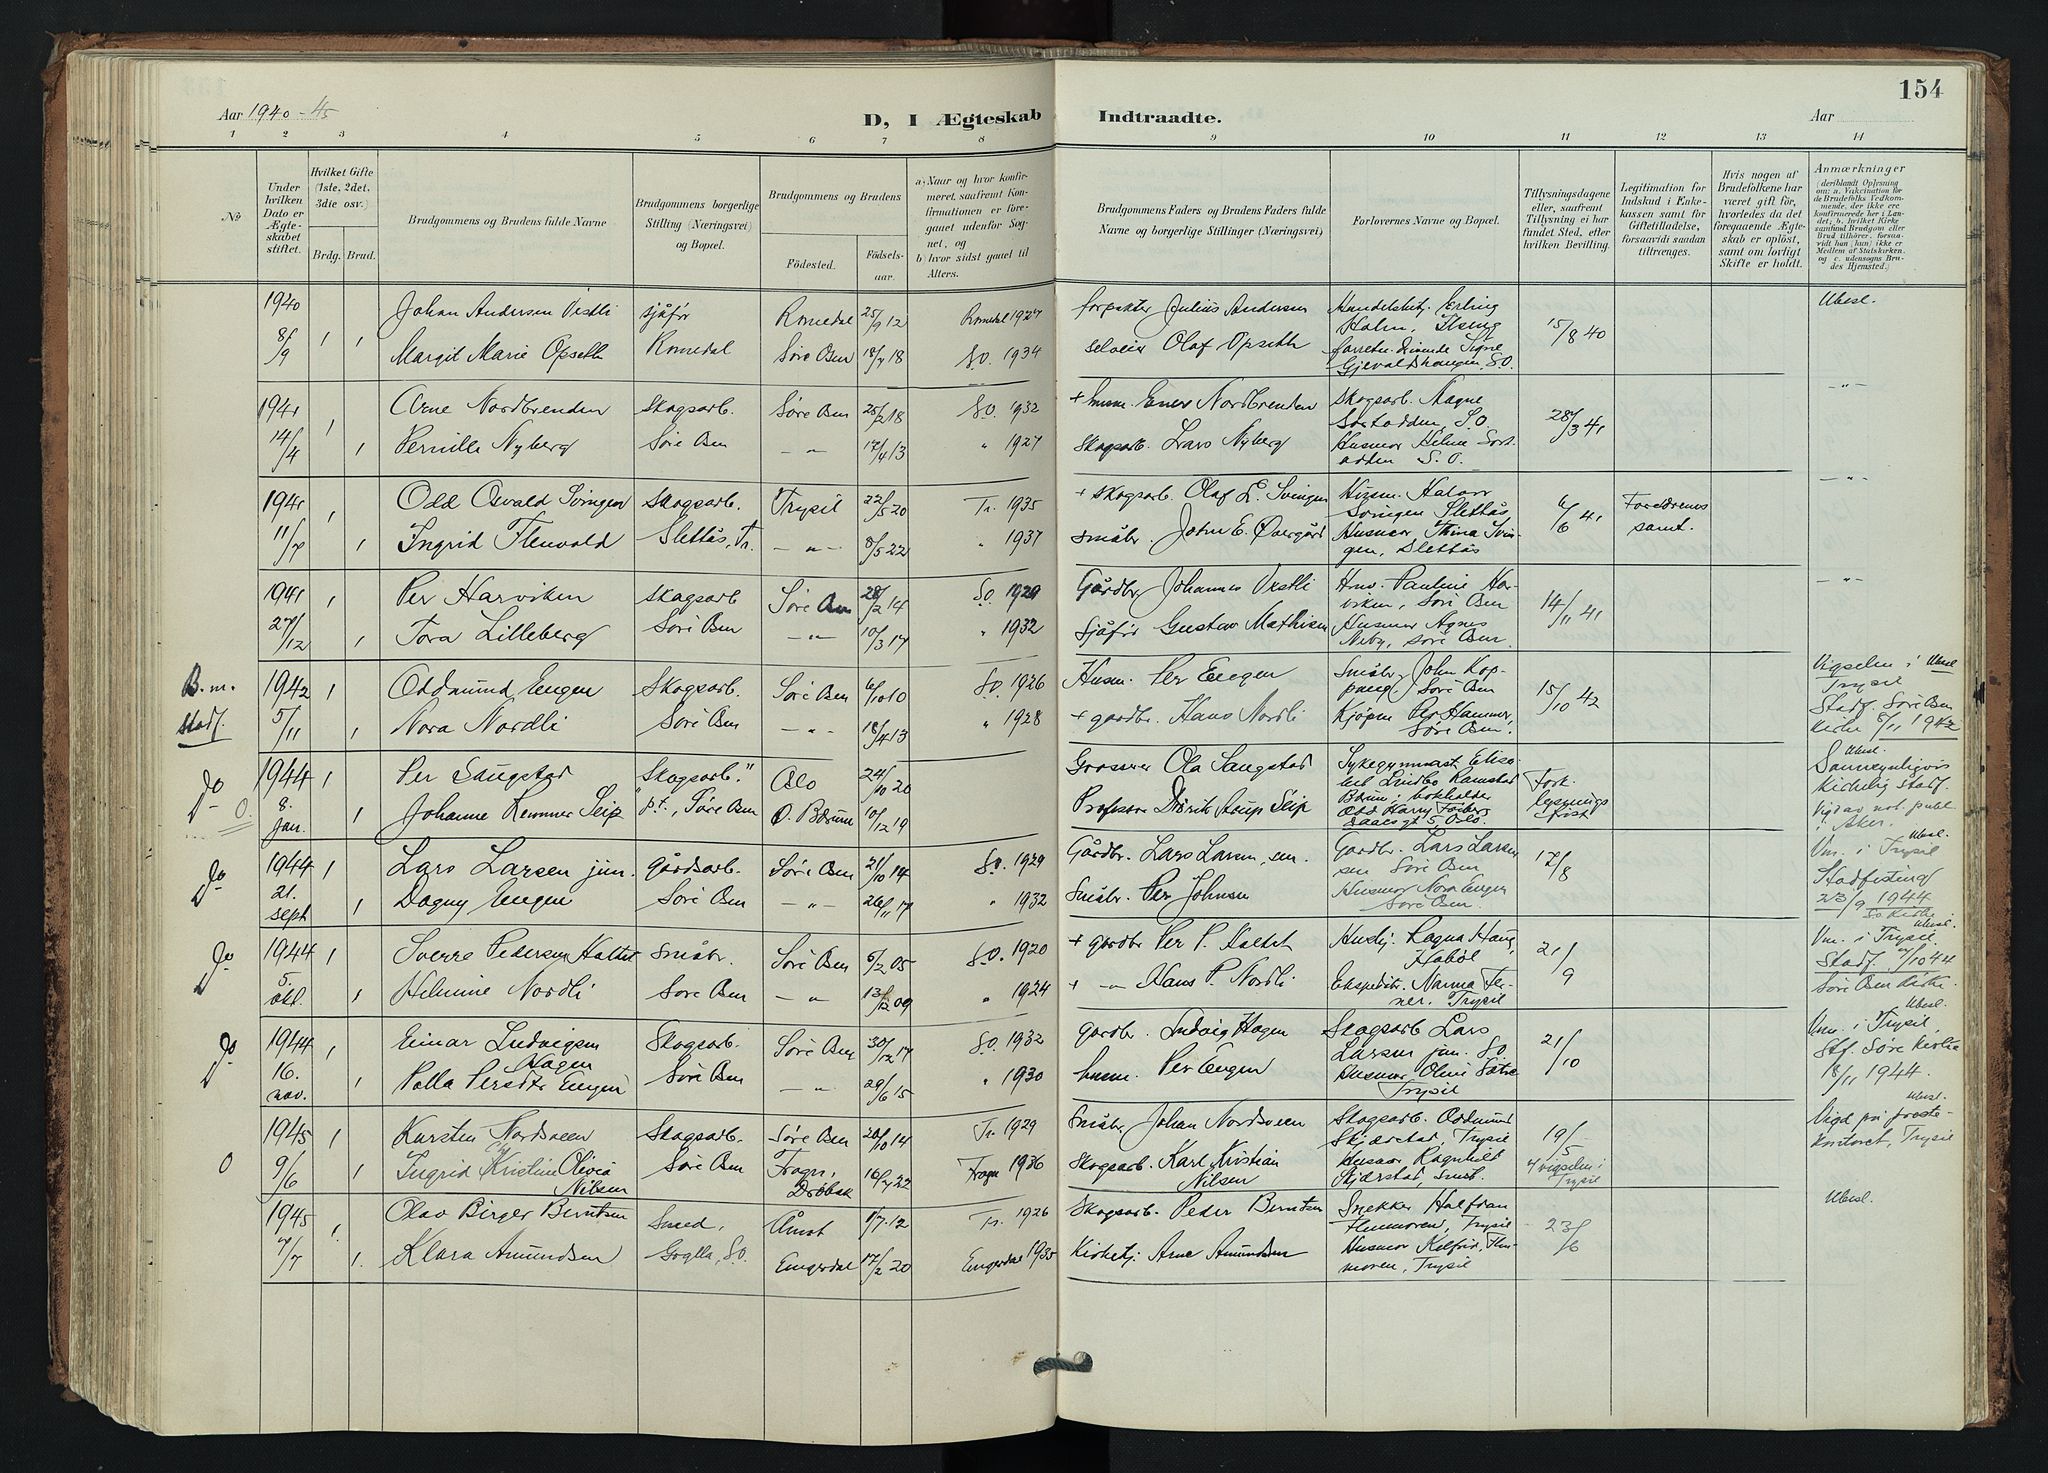 154
Aar 1940-45
D, I Ægteskab Indtraadte.
Aar
1 2 3 4 5 6 7 8 9 10 11 12 13 14
No
Under hvilken Dato er Ægteskabet stiftet.
Hvilket Gifte (1ste, 2det, 3die osv.)
Brdg. Brud.
Brudgommens og Brudens fulde Navne
Brudgommens borgerlige Stilling (Næringsvei) og Bopæl.
Brudgommens og Brudens
Födested. Födselsaar.
a) Naar og hvor konfirmeret, saafremt Konfirmationen er foregaaet udenfor Sognet, og
b) hvor sidst gaaet til Alters.
Brudgommens Faders og Brudens Faders fulde Navne og borgerlige Stillinger (Næringsvei)
Forlovernes Navne og Bopæl.
Tillysningsdagene eller, saafremt Tillysning ei har fundet Sted, efter hvilken Bevilling.
Legitimation for Indskud i Enkekassen samt for Giftetilladelse, forsaavidt saadan tiltrænges.
Hvis nogen af Brudefolkene har været gift för, hvorledes da det foregaaende Ægteskab er oplöst, samt om lovligt Skifte er holdt.
Anmærkninger
(deriblandt Oplysning om: a. Vakcination for de Brudefolks Vedkommende, der ikke ere konfirmerede her i Landet; b. hvilket Kirkesamfund Brudgom eller Brud tilhörer, forsaavidt han (hun) ikke er Medlem af Statskirken, og c. udensogns Brudes Hjemsted.)
1940 Johan Andersen Vistli sjåfør Romedal 25/9 12 Romedal 1927 forpakter Julius Andersen Erling Holm, Ilseng 15/8 40 Ubesl.
8/9 1 1 Margit Marie Opseth Romedal Søre Osen 18/7 18 S.O. 1934 selveier Olaf Opseth Signe Gjevaldshaugen, S.O.
1941 1 Arne Nordbrenden Skogsarb. Søre Osen 25/2 18 S.O. 1932 + husm. Nordbrenden Skogsarb. Magne S.O. 28/3 41 -"-
14/4 1 Pernille Nyberg Søre Osen -"- 17/4 13 " 1927 Skogsarb. Lars Nyberg Husmor S.O.
1941 1 Odd Osvald Svingen Skogsarb. Trysil 22/5 20 Tr. 1935 + skogsarb. Olaf L. Svingen Husm. Halvor Svingen Slettås 6/6 41 Foreldrenes samt. -"-
11/7 1 Ingrid Flenvold Slettås, Tr. -"- 8/5 22 " 1937 Småbr. John E. Øvergård Husmor Thina Svingen, Slettås
1941 1 Per Harviken Skogsarb Søre Osen 28/2 14 S.O. 1929 Gårdbr. Johannes Vestli Pauline Harviken, Søre Osen 14/11 41 -"-
27/12 1 Tora Lilleberg Søre Osen -"- 10/3 17 " 1932 Sjåfør Gustav Mathisen Husmor Agnes Neby, Søre Osen
B.m. 1942 1 Oddmund Engen Skogsarb. Søre Osen 6/10 10 S.O. 1926 Husm. Per Engen Småbr. John Koppang, Søre Osen 15/10 42 Vigselen i Trysil Ubesl
Stadf. 5/11 1 Nora Nordli Søre Osen -"- 18/4 13 " 1928 + gårdbr. Hans Nordli Kjøpm. Per Hammer, Søre Osen. Stadf. Søre Osen kirke 8/11 1942
Do 1944 1 Per Saugstad "Skogsarb." Oslo 24/10 20 Grosserer Ola Saugstad Sykegymnast Lindbo Ramstad Ubesl. Sannsynligvis kirkelig stadf.
O. 8. jan. 1 Johanne Kemner Seip p.t. Søre Osen Ø. Bærum 10/12 19 Professor Didrik Arup Seip Bærum, bokholder 5, Oslo. Vigd av not. publ. i Asker.
Do 1944 1 Lars Larsen jun. gårdsarb. Søre Osen 21/10 14 S.O. 1929 Gårdbr. Lars Larsen, sen. Gårdbr. Lars Larsen sen Søre Osen 17/8 Ubesl. Vm. i Trysil
21. sept 1 Dagny Engen Søre Osen -"- 26/11 17 " 1932 Småbr. Per Johnsen Husmor Nora Engen Søre Osen. Stadfesting 23/9 1944 S.O. kirke
Do 1944 1 Sverre Pedersen Haltet Småbr. Søre Osen 6/2 05 S.O. 1920 + gårdbr Per P. Haltet Hushj. Ragna Haug, Hobøl 21/9 Ubesl. Vm. i Trysil.
5. okt. 1 Helmine Nordli Søre Osen -"- 13/12 09 " 1924 + -"- Hans P. Nordli Ekspeditr. Norma Trysil Stadf. 7/10 44 Søre Osen kirke
Do 1944 1 Einar Ludvigsen Hagen Skogsarb. Søre Osen 30/12 17 S.O. 1932 Gårdbr. Ludvig Hagen Skogsarb Lars Larsen jun. S.O. 21/10 Ubesl. Vm. i Trysil,
16. nov. 1 Palla Persdtr Engen Søre Osen -"- 29/6 15 " 1930 husm. Per Engen Husmor Oline Sætre Trysil Stf. Søre kirke 18/11 1944.
1945 1 Karsten Nordsveen Skogsarb. Søre Osen 20/10 14 Tr. 1929 Småbr. Johan Nordsveen Skogsarb. Oddmund Skjærstad, Trysil 19/5 Ubesl. Vigd på prestekontoret, Trysil
O 9/6 1 Ingrid Kristine Olivia Nilsen Søre Osen Frogn, Drøbak 16/7 22 Frogn 1936 Skogsarb. Karl Kristian Nilsen Husmor Ragnhild Skjærstad, smst. vigselen i Trysil
1945 1. Olav Birger Berntsen Smed, Åmot 1/7.12 Tr. 1926 Skogsarb. Peder Berntsen Snekker Halfdan Flenmoren, Trysil 23/6 Ubesl.
7/7 1. Klara Amundsen S.O. Engerdal 17/2 20 Engerdal 1935 Kirketj. Arne Amundsen Husmor Trysil